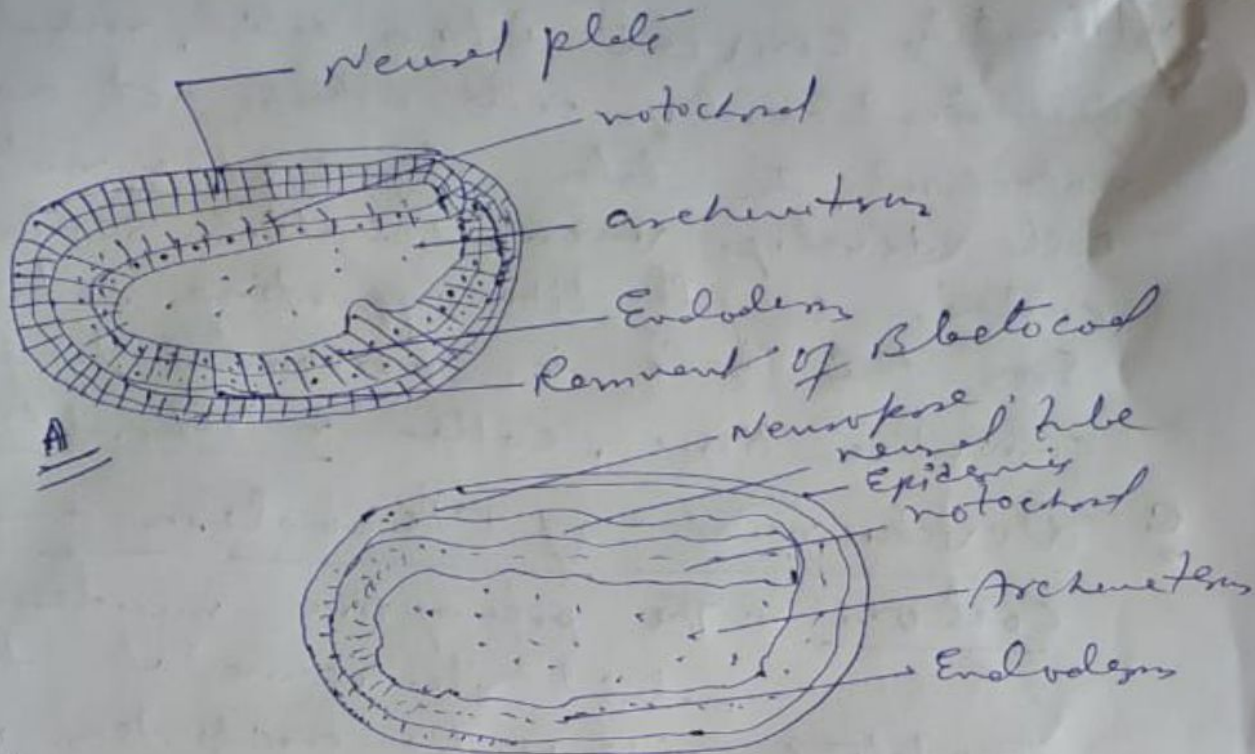 Neural plate
notochord
archenteron
Endoderm
Remnent of Blastocoel
A
Neuropore
neural tube
Epidermis
notochord
Archenteron
Endoderm